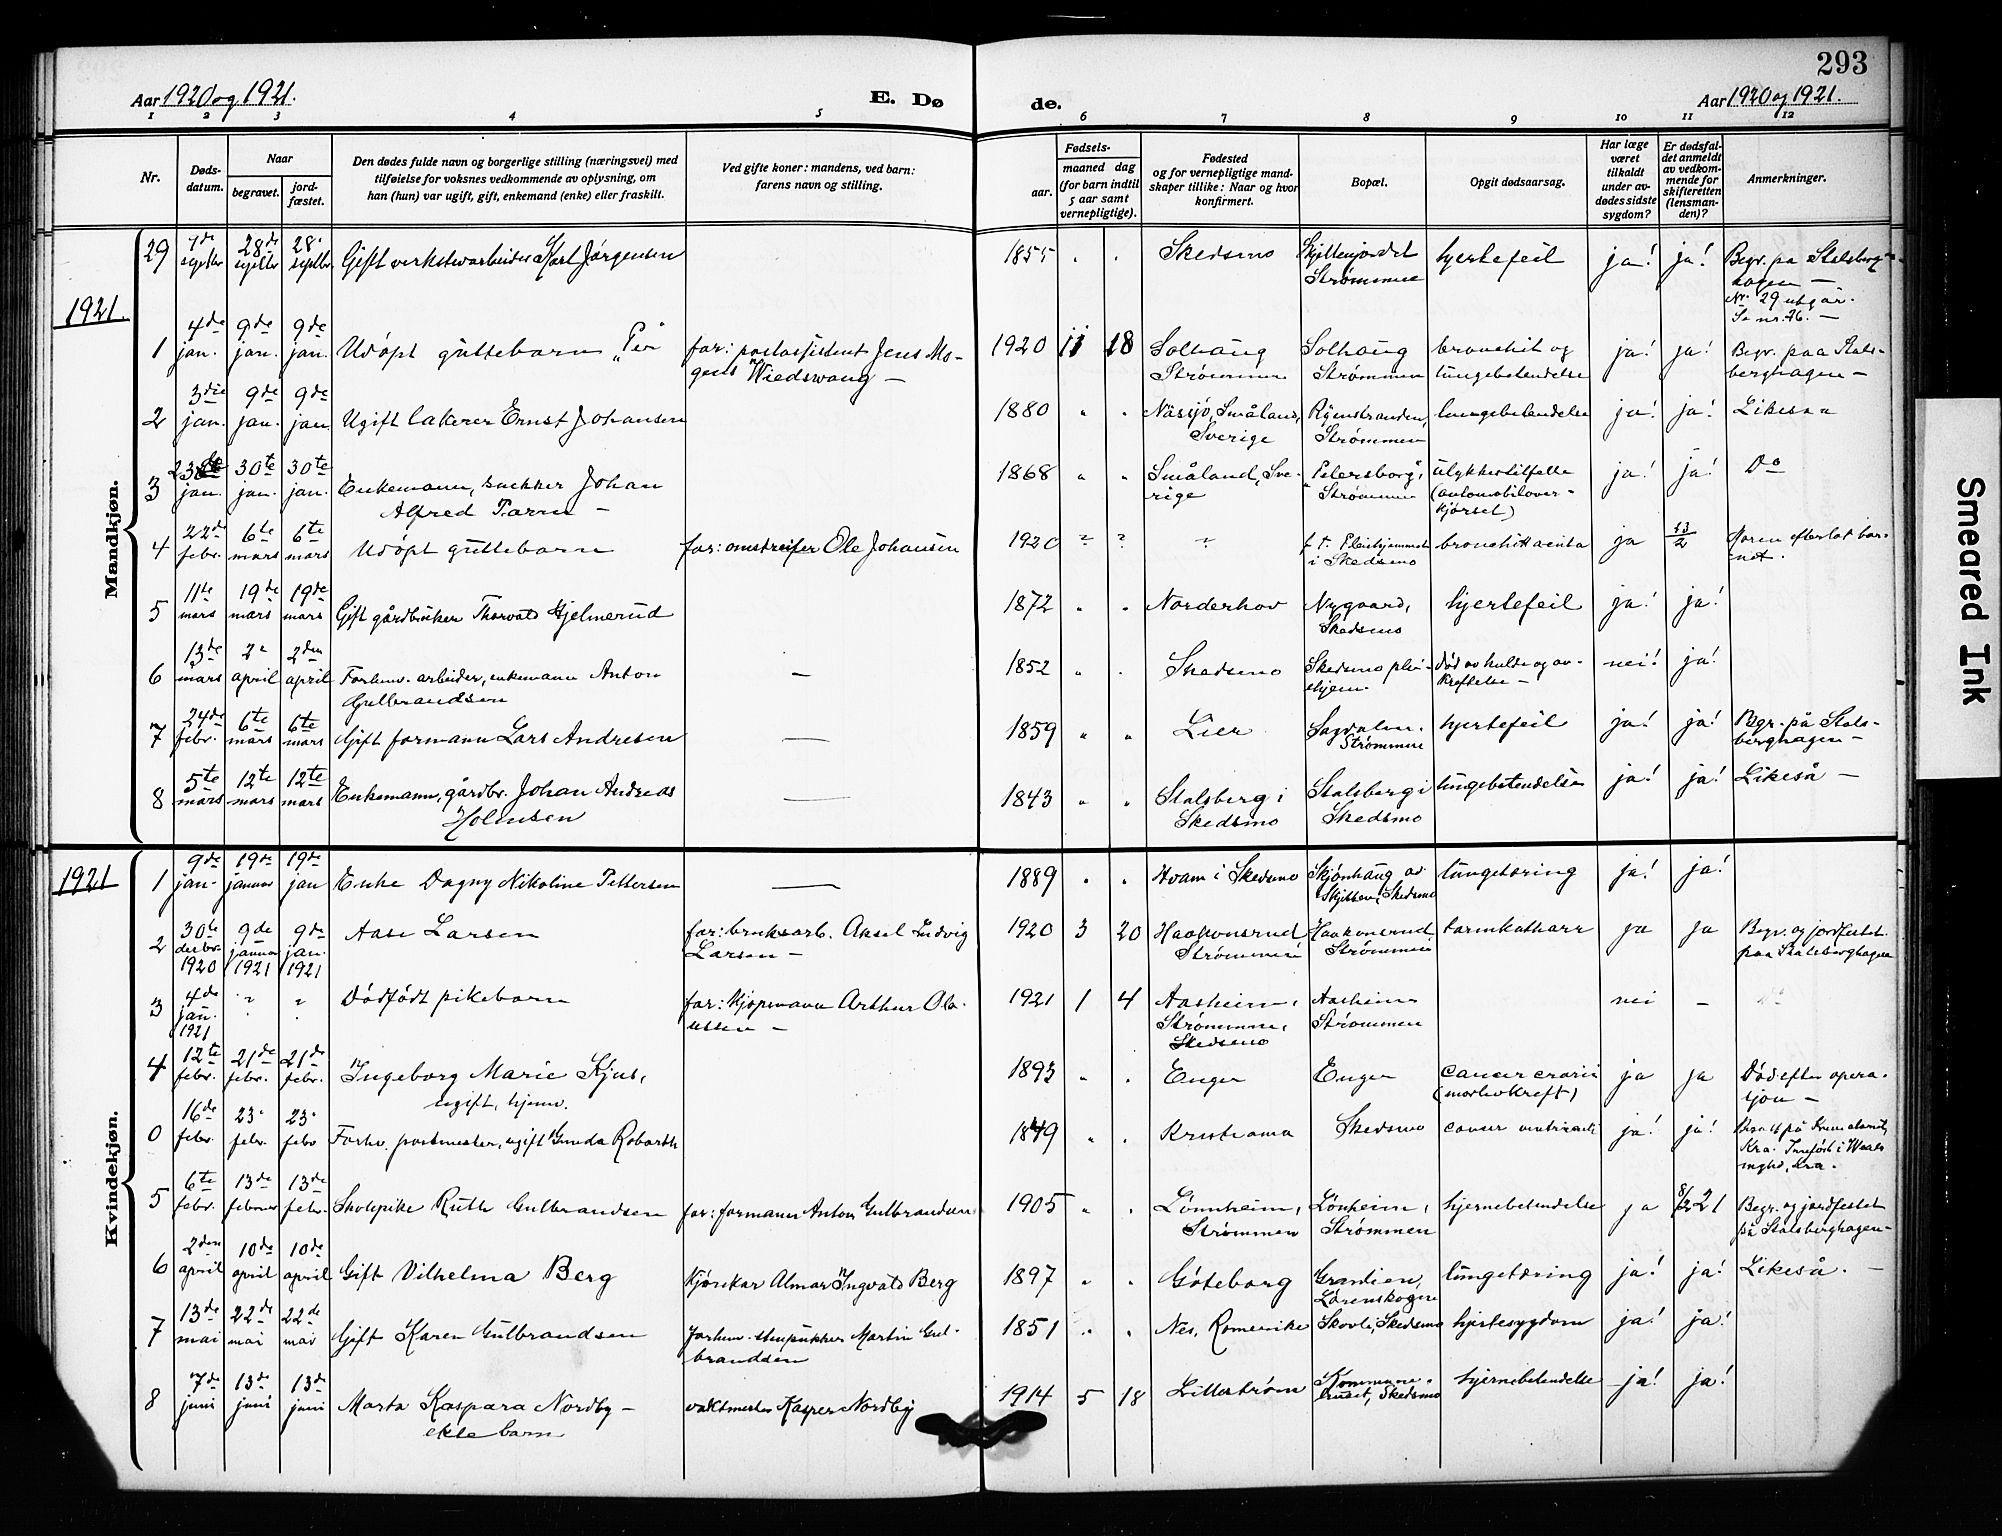 293
Aar 1920 og 1921.
E. Dø
de.
Aar 1920 og 1921.
1 2 3 4 5 6 7 8 9 10 11 12
Nr.
Døds-
datum.
Naar
begravet.
jord-
fæstet.
Den dødes fulde navn og borgerlige stilling (næringsvei) med
tilføielse for voksnes vedkommende av oplysning, om
han (hun) var ugift, gift, enkemand (enke) eller fraskilt.
Ved gifte koner: mandens, ved barn:
farens navn og stilling.
Fødsels-
aar.
maaned dag
(for barn indtil
5 aar samt
vernepligtige).
Fødested
og for vernepligtige mand-
skaper tillike: Naar og hvor
konfirmert.
Bopæl.
Opgit dødsaarsag.
Har læge
været
tilkaldt
under av-
dødes sidste
sygdom?
Er dødsfal-
det anmeldt
av vedkom-
mende for
skifteretten
(lensman-
den)?
Anmerkninger.
Mandkjøn.
29 septbr 28de septbr 28. septbr Gift verkstedarbeider Karl Jørgensen 1855 . . Skedsmo Skjettenjordet Strømmen hjertefeil ja! ja! Begr. på Stalsberg-
hagen —
Nr. 29 utgår.
Se nr. 26. —
1921.
1 4de jan. 9de jan. 9de jan. Udöpt guttebarn "Per" far: postassistent Jens Mo-
gens Wiedswang — 1920 11 18 Solhaug Strømmen Solhaug Strømmen bronchit og lungebetendelse ja! ja! Begr. paa Stals-
berghagen —
2 3die jan. 9de jan. 9de jan Ugift lakerer Ernst Johansen 1880 " . Nässjö, Småland, Sverige Strømmen lungebetendelse ja! ja! Likesaa
3 jan. 30te jan. 30te jan. Enkemann, snekker Johan
Alfred Tarm — 1868 " " Småland, Sve-
rige "Petersborg", Strømmen ulykkestilfelle
(automobilover-
kjørsel) ja! ja! Do
4 22de febr. 6te mars 6te mars Udöpt guttebarn far: omstreifer Ole Johansen 1920 ? ? ? f. t. Pleiehjemmet
i Skedsmo bronchit acuta ja 23/2 Moren efterlot bar-
net.
5 11te mars 19de mars 19de mars Gift gårdbruker Thorvald Hjelmerud 1872 " " Norderhov Nygaard, Skedsmo hjertefeil ja! ja!
6 13de mars 2" april 2den april Forhenv. arbeider, enkemann Anton
Gulbrandsen — 1852 " . Skedsmo Skedsmo plei-
ehjem. død av kulde og av-
kreftelse — nei! ja!
7 24de febr. 6te mars 6te mars Gift formann Lars Andresen — 1859 " " Lier Sagdalen. Strømmen hjertefeil ja! ja! Begr. på Stals-
berghagen —
8 5te mars 12te mars 12te mars Enkemann, gårdbr. Johan Andreas
Holmsen — 1843 " " Stalsberg i
Skedsmo Stalsberg i
Skedsmo lungebetendelse ja! ja! Likeså —
1921
Kvindekjøn.
1 9de jan. 19de januar 19de jan Enke Dagny Nikoline Pettersen — 1889 . . Hvam i Skedsmo Skjønhaug av
Skjetten, Skedsmo lungetæring ja! ja!
2 30te desbr. 1920 9de januar 1921 9de jan. 1921 Aase Larsen far: bruksarb. Aksel Ludvig
Larsen — 1920 3 20 Haakonsrud
Strømmen Haakonsrud
Strømmen tarmkatharr ja ja Begr. og jordfestet
paa Stalsberghagen
3 4de jan. 1921 " " Dödfödt pikebarn far: kjøpmann Arthur Ola-
ussen — 1921 1 4 Aasheim,
Strømmen,
Skedsmo Aasheim
Strømmen nei —
4 12te febr. 21de febr. 21de febr. Ingeborg Marie Kjus,
ugift, hjemv. 1893 " . Enger Enger cancer ovarii
(morlivskreft) ja ja Död efter opera-
sjon —
0 16de febr. 23. febr. 23. febr Forhv. postmester, ugift Gunda Robarth 1849 " . Kristiania Skedsmo cancer ventriculi ja! ja! Kra. Innført i
5 6te febr. 13de februar 13de febr. Skolepike Ruth Gulbrandsen far: formann Anton Gulbrandsen 1905 " . Lønnheim,
Strømmen Lönheim,
Strømmen hjernebetendelse ja 8/2 21 Begr. og jordfestet
på Stalsberghagen —
6 2den april 10de april 10de april Gift Vilhelma Berg kjørekar Almar Ingvald Berg 1897 " . Göteborg Granlien,
Lørenskogen lungetæring ja! ja! Likeså. —
7 13de mai 22de mai 22de mai Gift Karen Gulbrandsen forhenv. stenpukker Martin Gul-
brandsen 1851 " " Nes, Romerike Skovli, Skedsmo hjertesygdom ja! ja!
8 7de juni 13de juni 13de juni Marta Kaspara Nordby —
ekte barn vaktmester Kasper Nordby 1914 5 18 Lillestrøm Kommune-
huset, Skedsmo hjernebetendelse ja! ja!
Smeared Ink